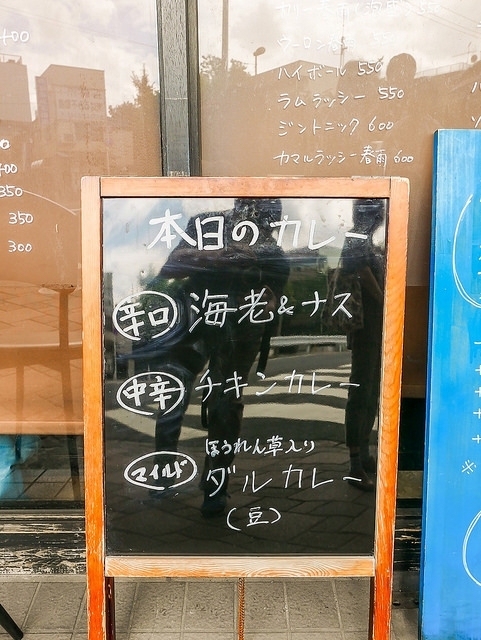 ハイボール 550
ラムラッシー 550
ジントニック 600
カマルラッシー春雨 600
400
350
350
300
本日のカレー
辛口 海老&ナス
中辛 チキンカレー
マイルド ほうれん草入り
ダルカレー
(豆)
※